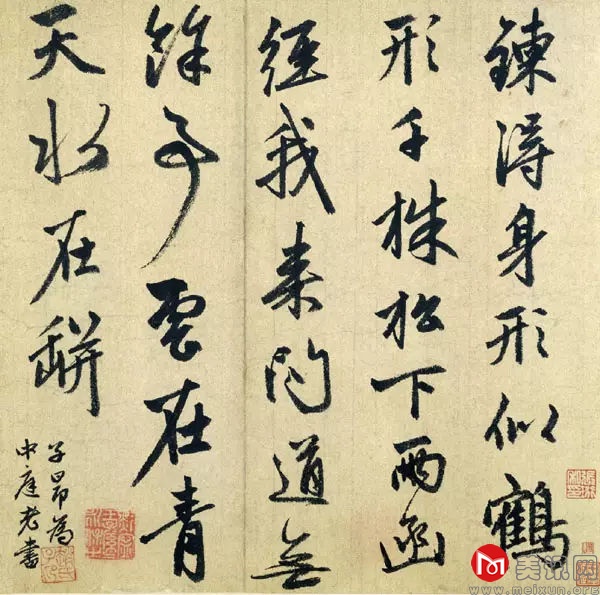 鍊得身形似鶴
形千株松下兩函
經我來問道無
餘事雲在青
天水在缾
子昂為
中庭老書
美讯网
www.meixun.org